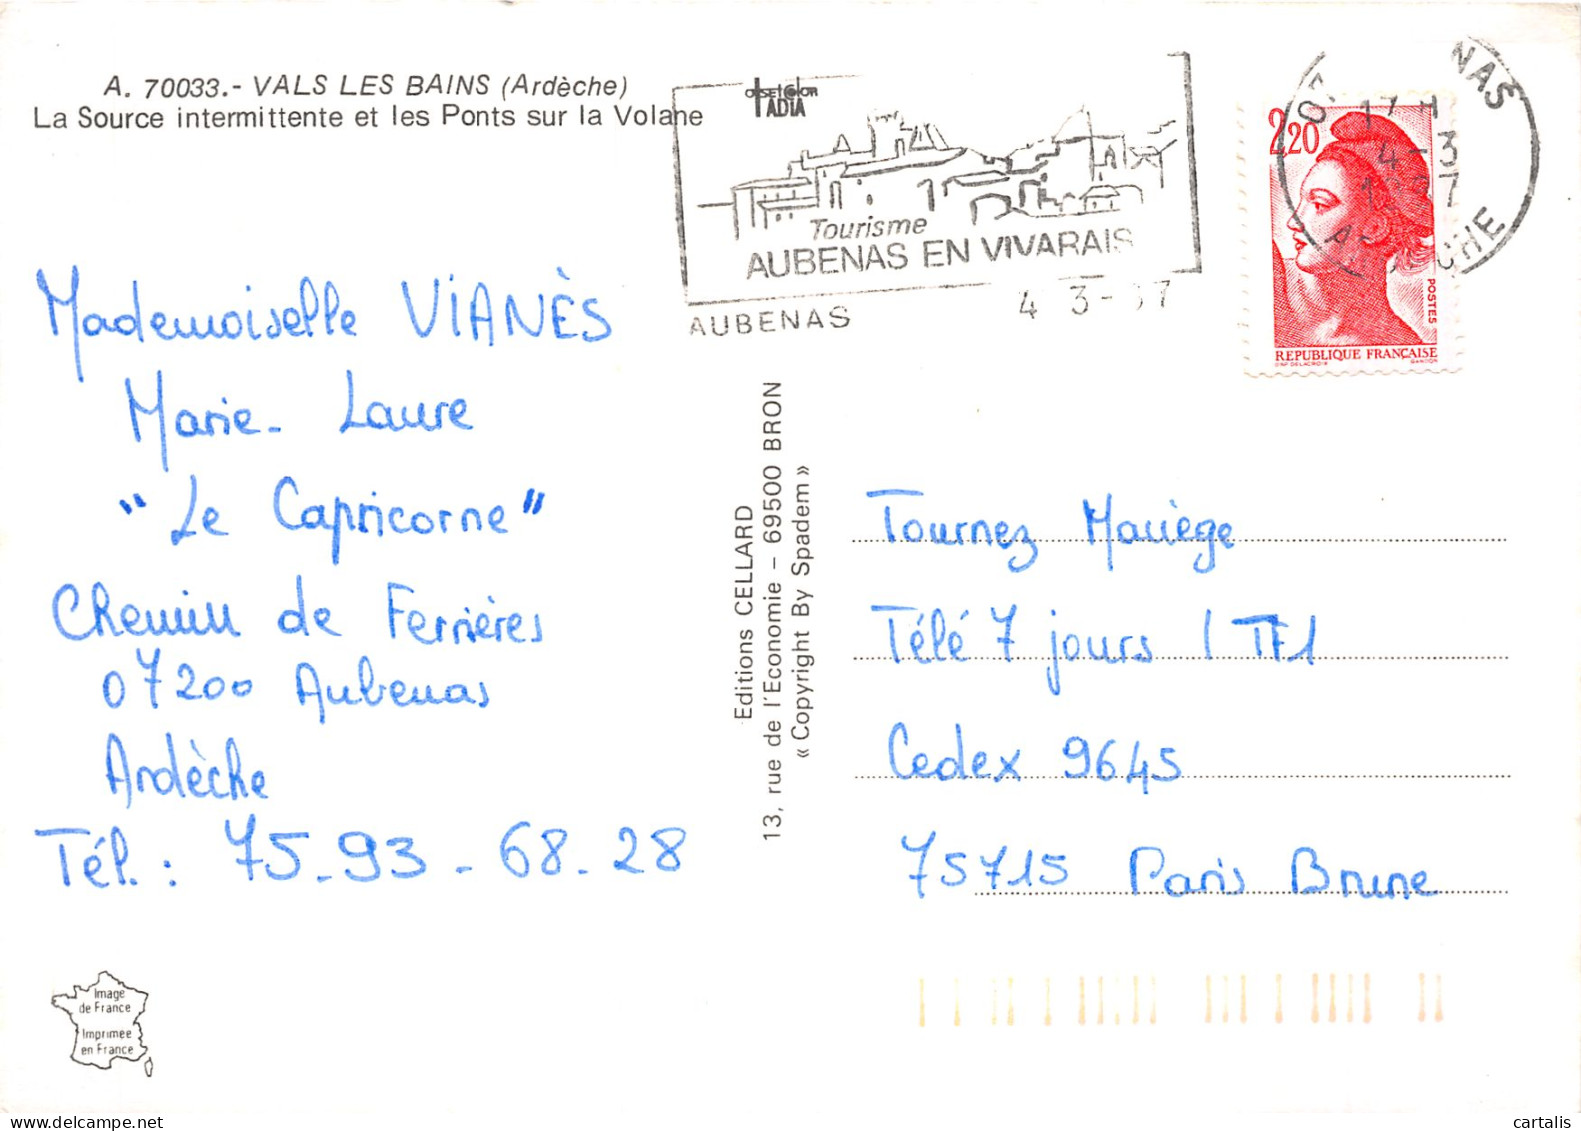 A. 70033.- VALS LES BAINS (Ardèche)
La Source intermittente et les Ponts sur la Volane
Tourisme
AUBENAS EN VIVARAIS
AUBENAS
4 3-
17 H
4-3
ARDECHE
2,20
POSTES
REPUBLIQUE FRANÇAISE
Mademoiselle VIANÈS
Marie-Laure
"Le Capricorne"
Chemin de Ferrières
07200 Aubenas
Ardèche
Tél. : 75-93-68-28
Editions CELLARD
13, rue de l'Economie - 69500 BRON
« Copyright By Spadem »
Tournez Manège
Télé 7 jours / TF1
Cedex 9645
75715 Paris Brune
Image
de France
Imprimee
en France
cartalis
delcampe.net